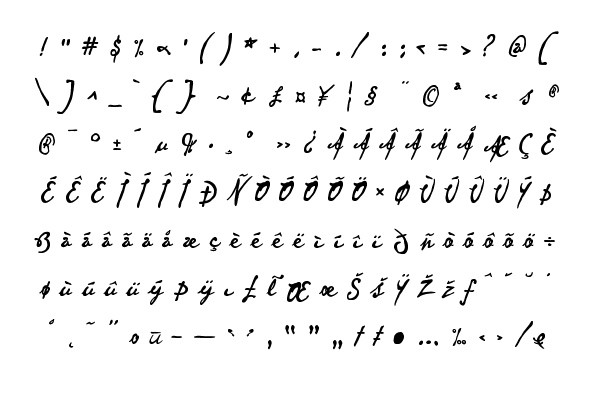 ! " # $ % & ' ( ) * + , - . / : ; < = > ? @ (
\ ) ^ _ ` { } ~ ¢ £ ¤ ¥ ¦ § ¨ © ª ‹‹ s ®
@ ¯ ° ± ´ µ ¶ · ¸ ° ›› ¿ À Á Â Ã Ä Å Æ Ç È
É Ê Ë Ì Í Î Ï Ð Ñ Ò Ó Ô Õ Ö × Ø Ù Ú Û Ü Ý Þ
ß à á â ã ä å æ ç è é ê ë ì í î ï ð ñ ò ó ô õ ö ÷
ø ù ú û ü ý þ ÿ ı Ł ł Œ œ Š š Ÿ Ž ž ƒ ˆ ˇ ˘ ˙
˚ ˛ ˜ ˝ o ū – — ‘ ’ ‚ “ ” „ † ‡ • … ‰ ‹ › / e